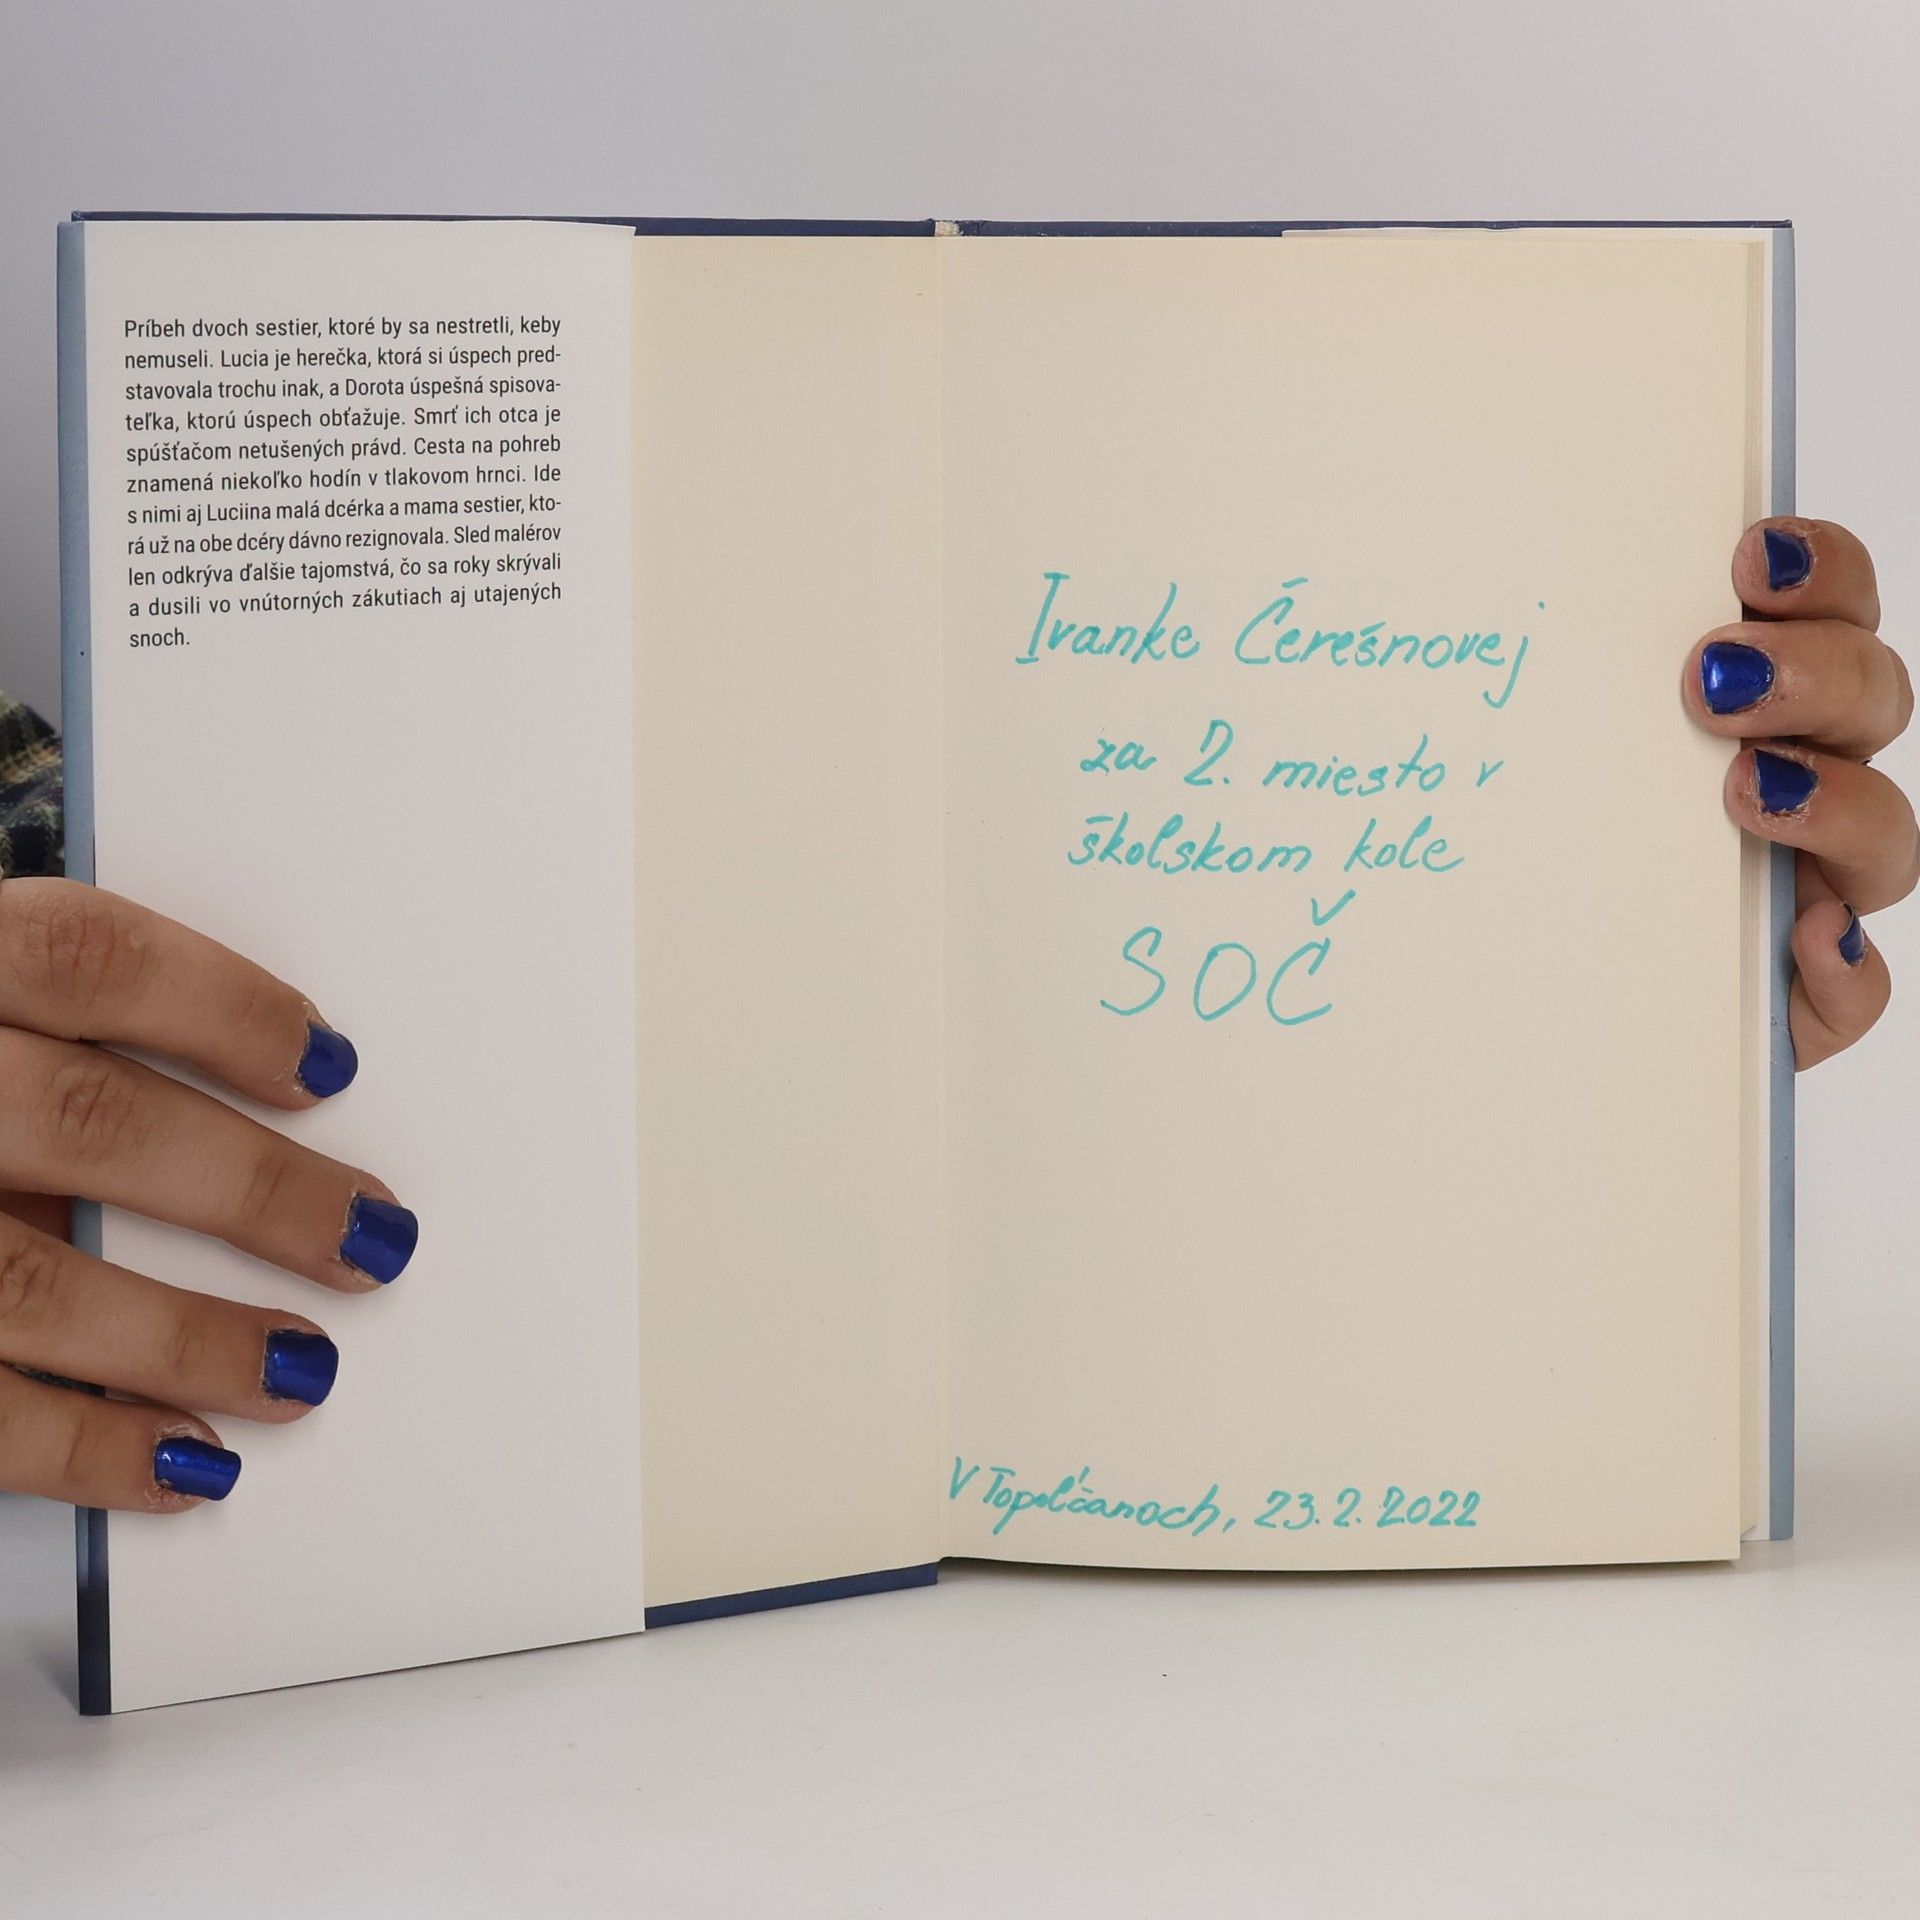 Príbeh dvoch sestier, ktoré by sa nestretli, keby
nemuseli. Lucia je herečka, ktorá si úspech pred-
stavovala trochu inak, a Dorota úspešná spisova-
teľka, ktorú úspech obťažuje. Smrť ich otca je
spúšťačom netušených právd. Cesta na pohreb
znamená niekoľko hodín v tlakovom hrnci. Ide
s nimi aj Luciina malá dcérka a mama sestier, kto-
rá už na obe dcéry dávno rezignovala. Sled malérov
len odkrýva ďalšie tajomstvá, čo sa roky skrývali
a dusili vo vnútorných zákutiach aj utajených
snoch.
Ivanke Čerešnovej
za 2. miesto v
školskom kole
SOČ
V Topoľčanoch, 23.2.2022